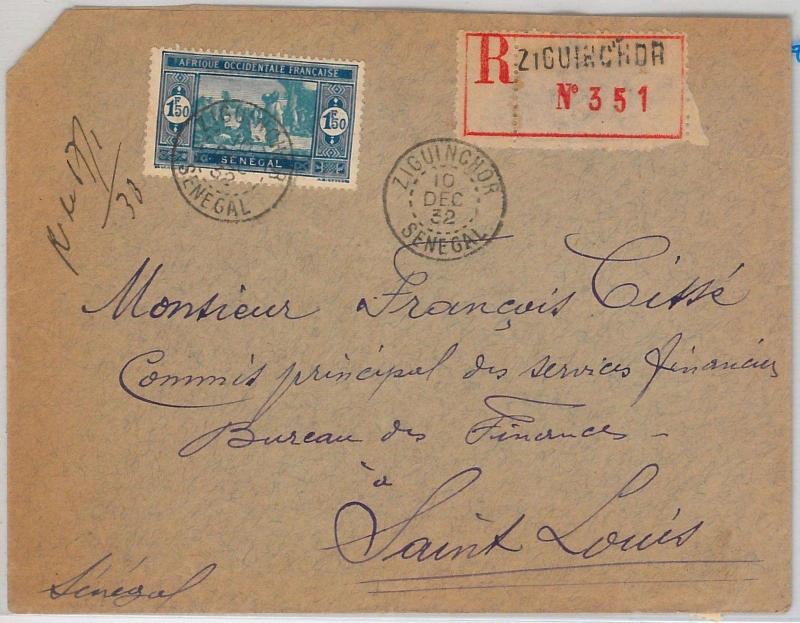 AFRIQUE OCCIDENTALE FRANÇAISE
1F50 1F50
SÉNÉGAL
ZIGUINCHOR
SENEGAL
R ZIGUINCHOR
N° 351
ZIGUINCHOR
10
DEC
32
SENEGAL
Monsieur François Cissé
Commis principal des services financiers
Bureau des Finances -
à
Saint Louis
Sénégal